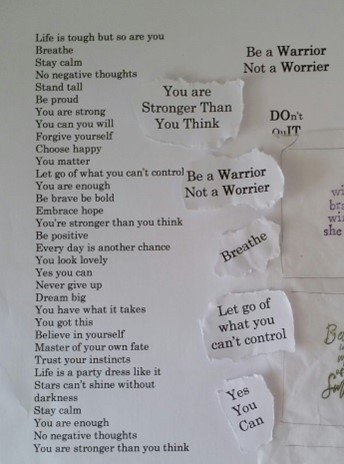 Life is tough but so are you
Breathe
Stay calm
No negative thoughts
Stand tall
Be proud
You are strong
You can you will
Forgive yourself
Choose happy
You matter
Let go of what you can't control
You are enough
Be brave be bold
Embrace hope
You're stronger than you think
Be positive
Every day is another chance
You look lovely
Yes you can
Never give up
Dream big
You have what it takes
You got this
Believe in yourself
Master of your own fate
Trust your instincts
Life is a party dress like it
Stars can't shine without
darkness
Stay calm
You are enough
No negative thoughts
You are stronger than you think
You are
Stronger Than
You Think
Be a Warrior
Not a Worrier
Breathe
Let go of
what you
can't control
Yes
You
Can
Be a Warrior
Not a Worrier
DOn't
QuIT
she